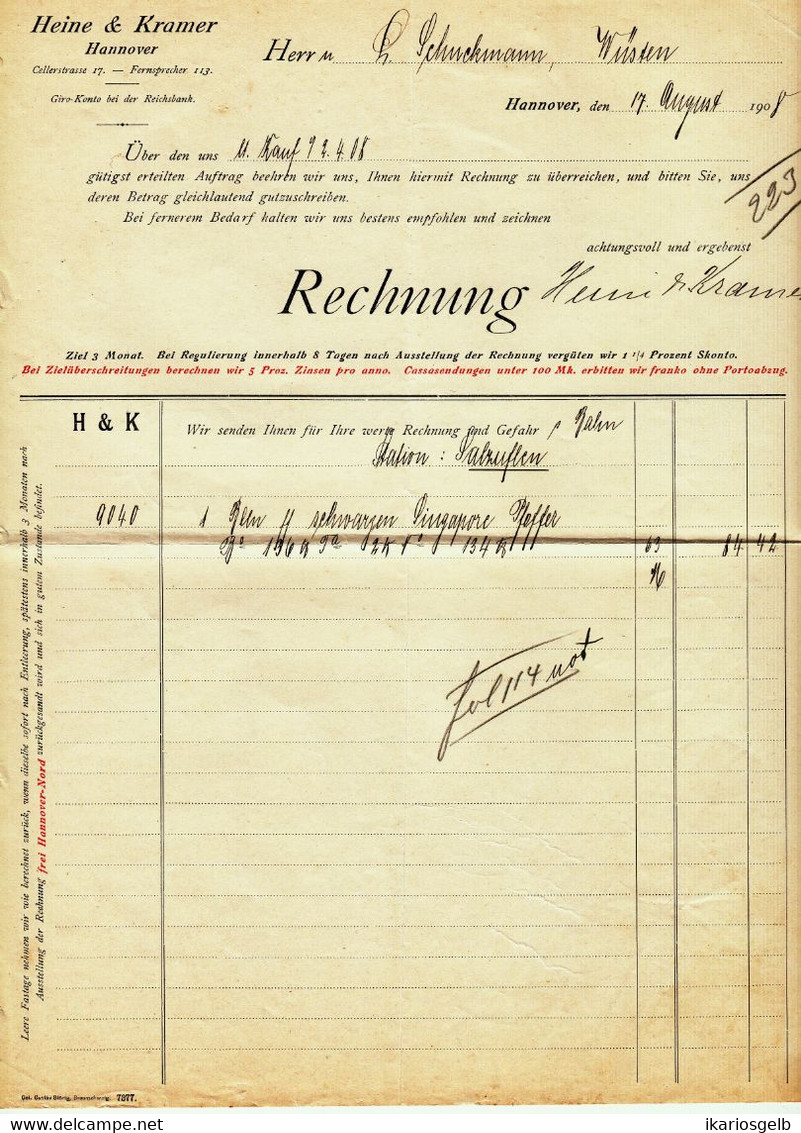 Heine & Kramer
Hannover
Cellerstrasse 17. — Fernsprecher 113.
Giro-Konto bei der Reichsbank.
Herrn L. Schuckmann, Wüsten
Hannover, den 17. August 1908
Über den uns lt. Kauf 2.4.08
gütigst erteilten Auftrag beehren wir uns, Ihnen hiermit Rechnung zu überreichen, und bitten Sie, uns
deren Betrag gleichlautend gutzuschreiben.
Bei fernerem Bedarf halten wir uns bestens empfohlen und zeichnen
223
achtungsvoll und ergebenst
Rechnung
Heine & Kramer
Ziel 3 Monat. Bei Regulierung innerhalb 8 Tagen nach Ausstellung der Rechnung vergüten wir 1 1/4 Prozent Skonto.
Bei Zielüberschreitungen berechnen wir 5 Proz. Zinsen pro anno. Cassasendungen unter 100 Mk. erbitten wir franko ohne Portoabzug.
H & K
Wir senden Ihnen für Ihre werte Rechnung und Gefahr p Bahn
Station: Salzuflen
9040 1 Blln schwarzen Singapore Pfeffer
136 2 134 63 84 42
Fol 114 not
Leere Fastage nehmen wir wie berechnet zurück, wenn dieselbe sofort nach Entleerung, spätestens innerhalb 3 Monaten nach
Ausstellung der Rechnung frei Hannover-Nord zurückgesandt wird und sich in gutem Zustande befindet.
7377.
ikariosgelb